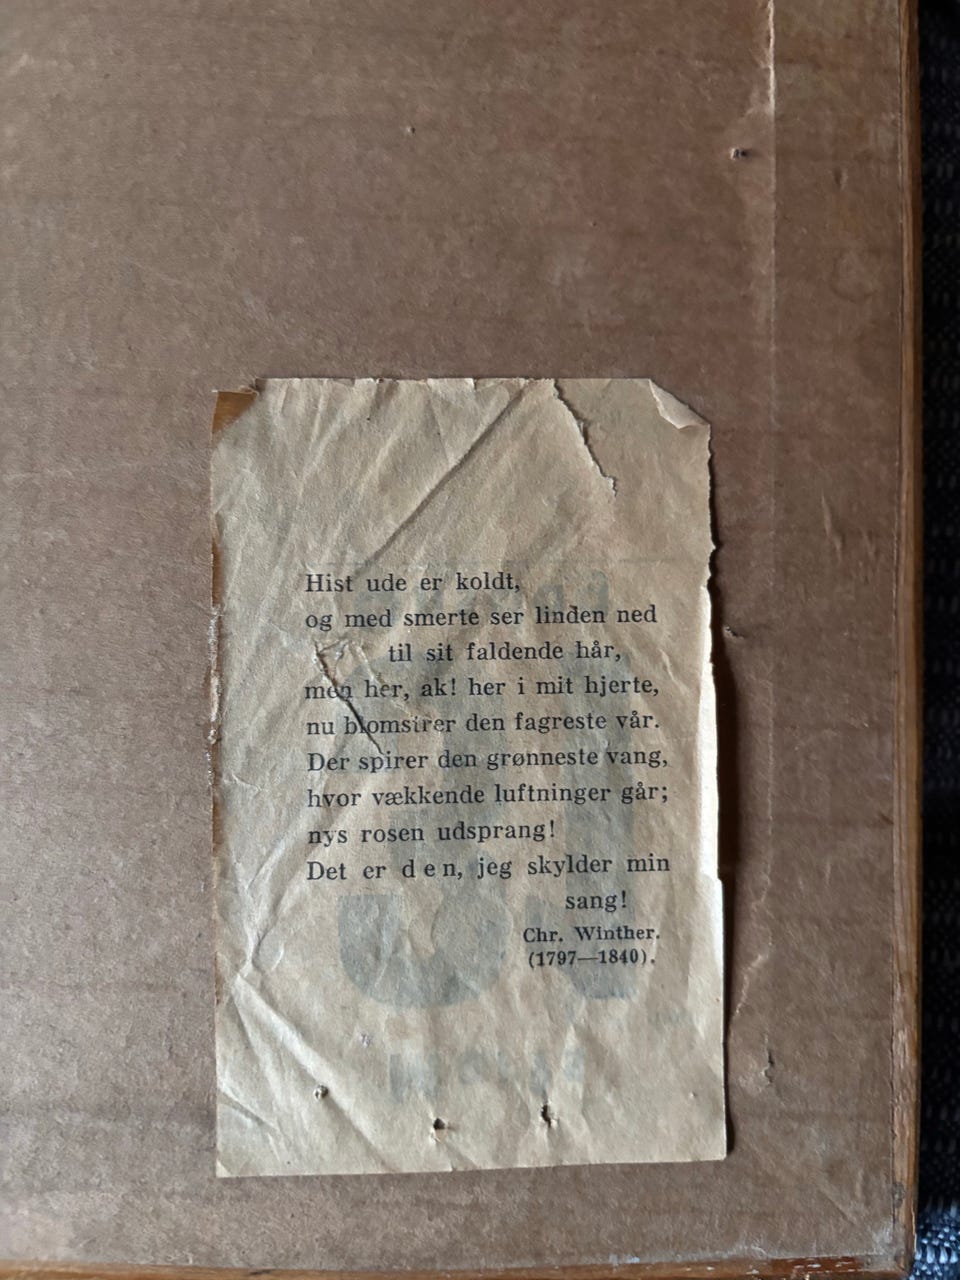 Hist ude er koldt,
og med smerte ser linden ned
til sit faldende hår,
men her, ak! her i mit hjerte,
nu blomstrer den fagreste vår.
Der spirer den grønneste vang,
hvor vækkende luftninger går;
nys rosen udsprang!
Det er den, jeg skylder min
sang!
Chr. Winther.
(1797—1840).